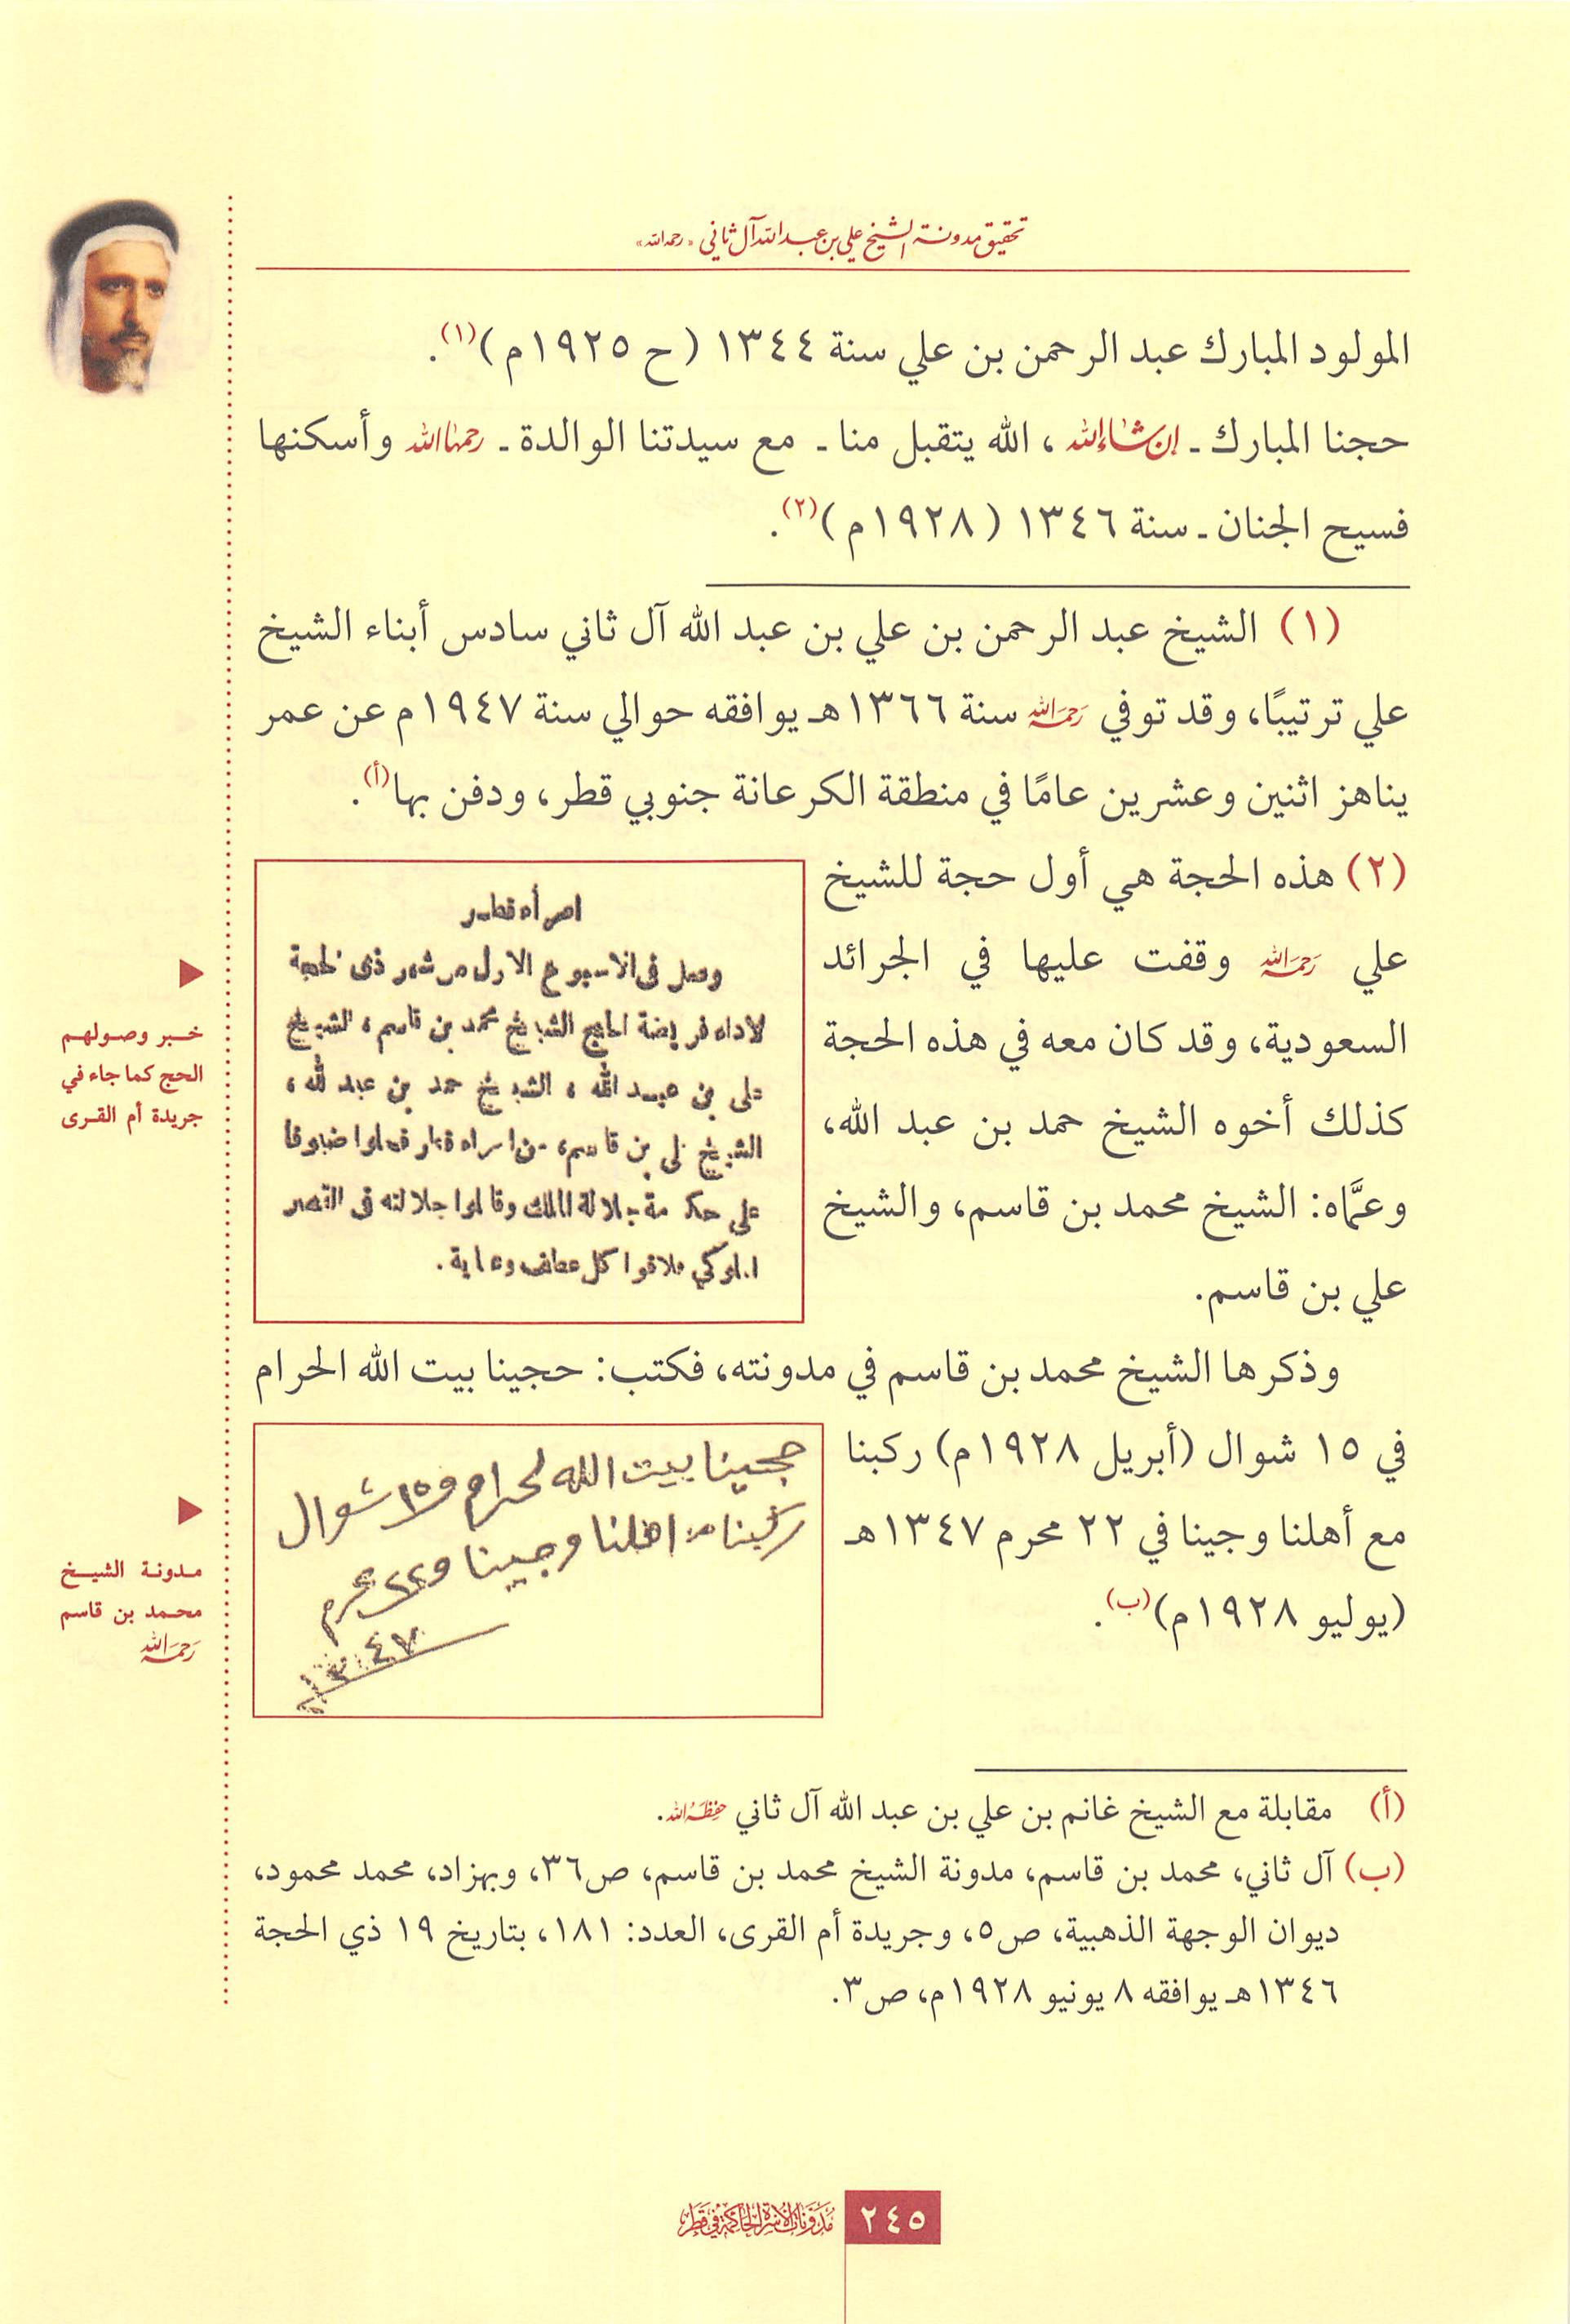 تحقيق مدونة الشيخ علي بن عبد الله آل ثاني «رحمه الله»
المولود المبارك عبد الرحمن بن علي سنة ١٣٤٤ (ح ١٩٢٥م)(١).
حجنا المبارك ـ إن شاء الله، الله يتقبل منا ـ مع سيدتنا الوالدة ـ رحمها الله وأسكنها
فسيح الجنان ـ سنة ١٣٤٦ (١٩٢٨م)(٢).
(١) الشيخ عبد الرحمن بن علي بن عبد الله آل ثاني سادس أبناء الشيخ
علي ترتيبًا، وقد توفي رحمه الله سنة ١٣٦٦هـ يوافقه حوالي سنة ١٩٤٧م عن عمر
يناهز اثنين وعشرين عامًا في منطقة الكرعانة جنوبي قطر، ودفن بها(أ).
(٢) هذه الحجة هي أول حجة للشيخ
علي رحمه الله وقفت عليها في الجرائد
السعودية، وقد كان معه في هذه الحجة
كذلك أخوه الشيخ حمد بن عبد الله،
وعمَّاه: الشيخ محمد بن قاسم، والشيخ
علي بن قاسم.
امرأه قطر
وصل فى الاسبوع الاول من شهر ذى الحجة
لاداء فريضة الحج الشيخ محمد بن قاسم، الشيخ
على بن عبد الله، الشيخ حمد بن عبد لله،
الشيخ على بن قاسم، من امراء قطر فحلوا ضيوفا
على حكومة جلالة الملك وقابلوا جلالته فى القصر
الملوكي فلاقوا كل عطف وعناية.
خبر وصولهم
الحج كما جاء في
جريدة أم القرى
وذكرها الشيخ محمد بن قاسم في مدونته، فكتب: حجينا بيت الله الحرام
في ١٥ شوال (أبريل ١٩٢٨م) ركبنا
مع أهلنا وجينا في ٢٢ محرم ١٣٤٧هـ
(يوليو ١٩٢٨م)(ب).
حجينا بيت الله لحرام في ١٥ شوال
ركبنا مع اهلنا وجينا في ٢٢ محرم
١٣٤٧
مدونة الشيخ
محمد بن قاسم
رحمه الله
(أ) مقابلة مع الشيخ غانم بن علي بن عبد الله آل ثاني حفظه الله.
(ب) آل ثاني، محمد بن قاسم، مدونة الشيخ محمد بن قاسم، ص٣٦، وبهزاد، محمد محمود،
ديوان الوجهة الذهبية، ص٥، وجريدة أم القرى، العدد: ١٨١، بتاريخ ١٩ ذي الحجة
١٣٤٦هـ يوافقه ٨ يونيو ١٩٢٨م، ص٣.
٢٤٥
مدونات الأسرة الحاكمة في قطر